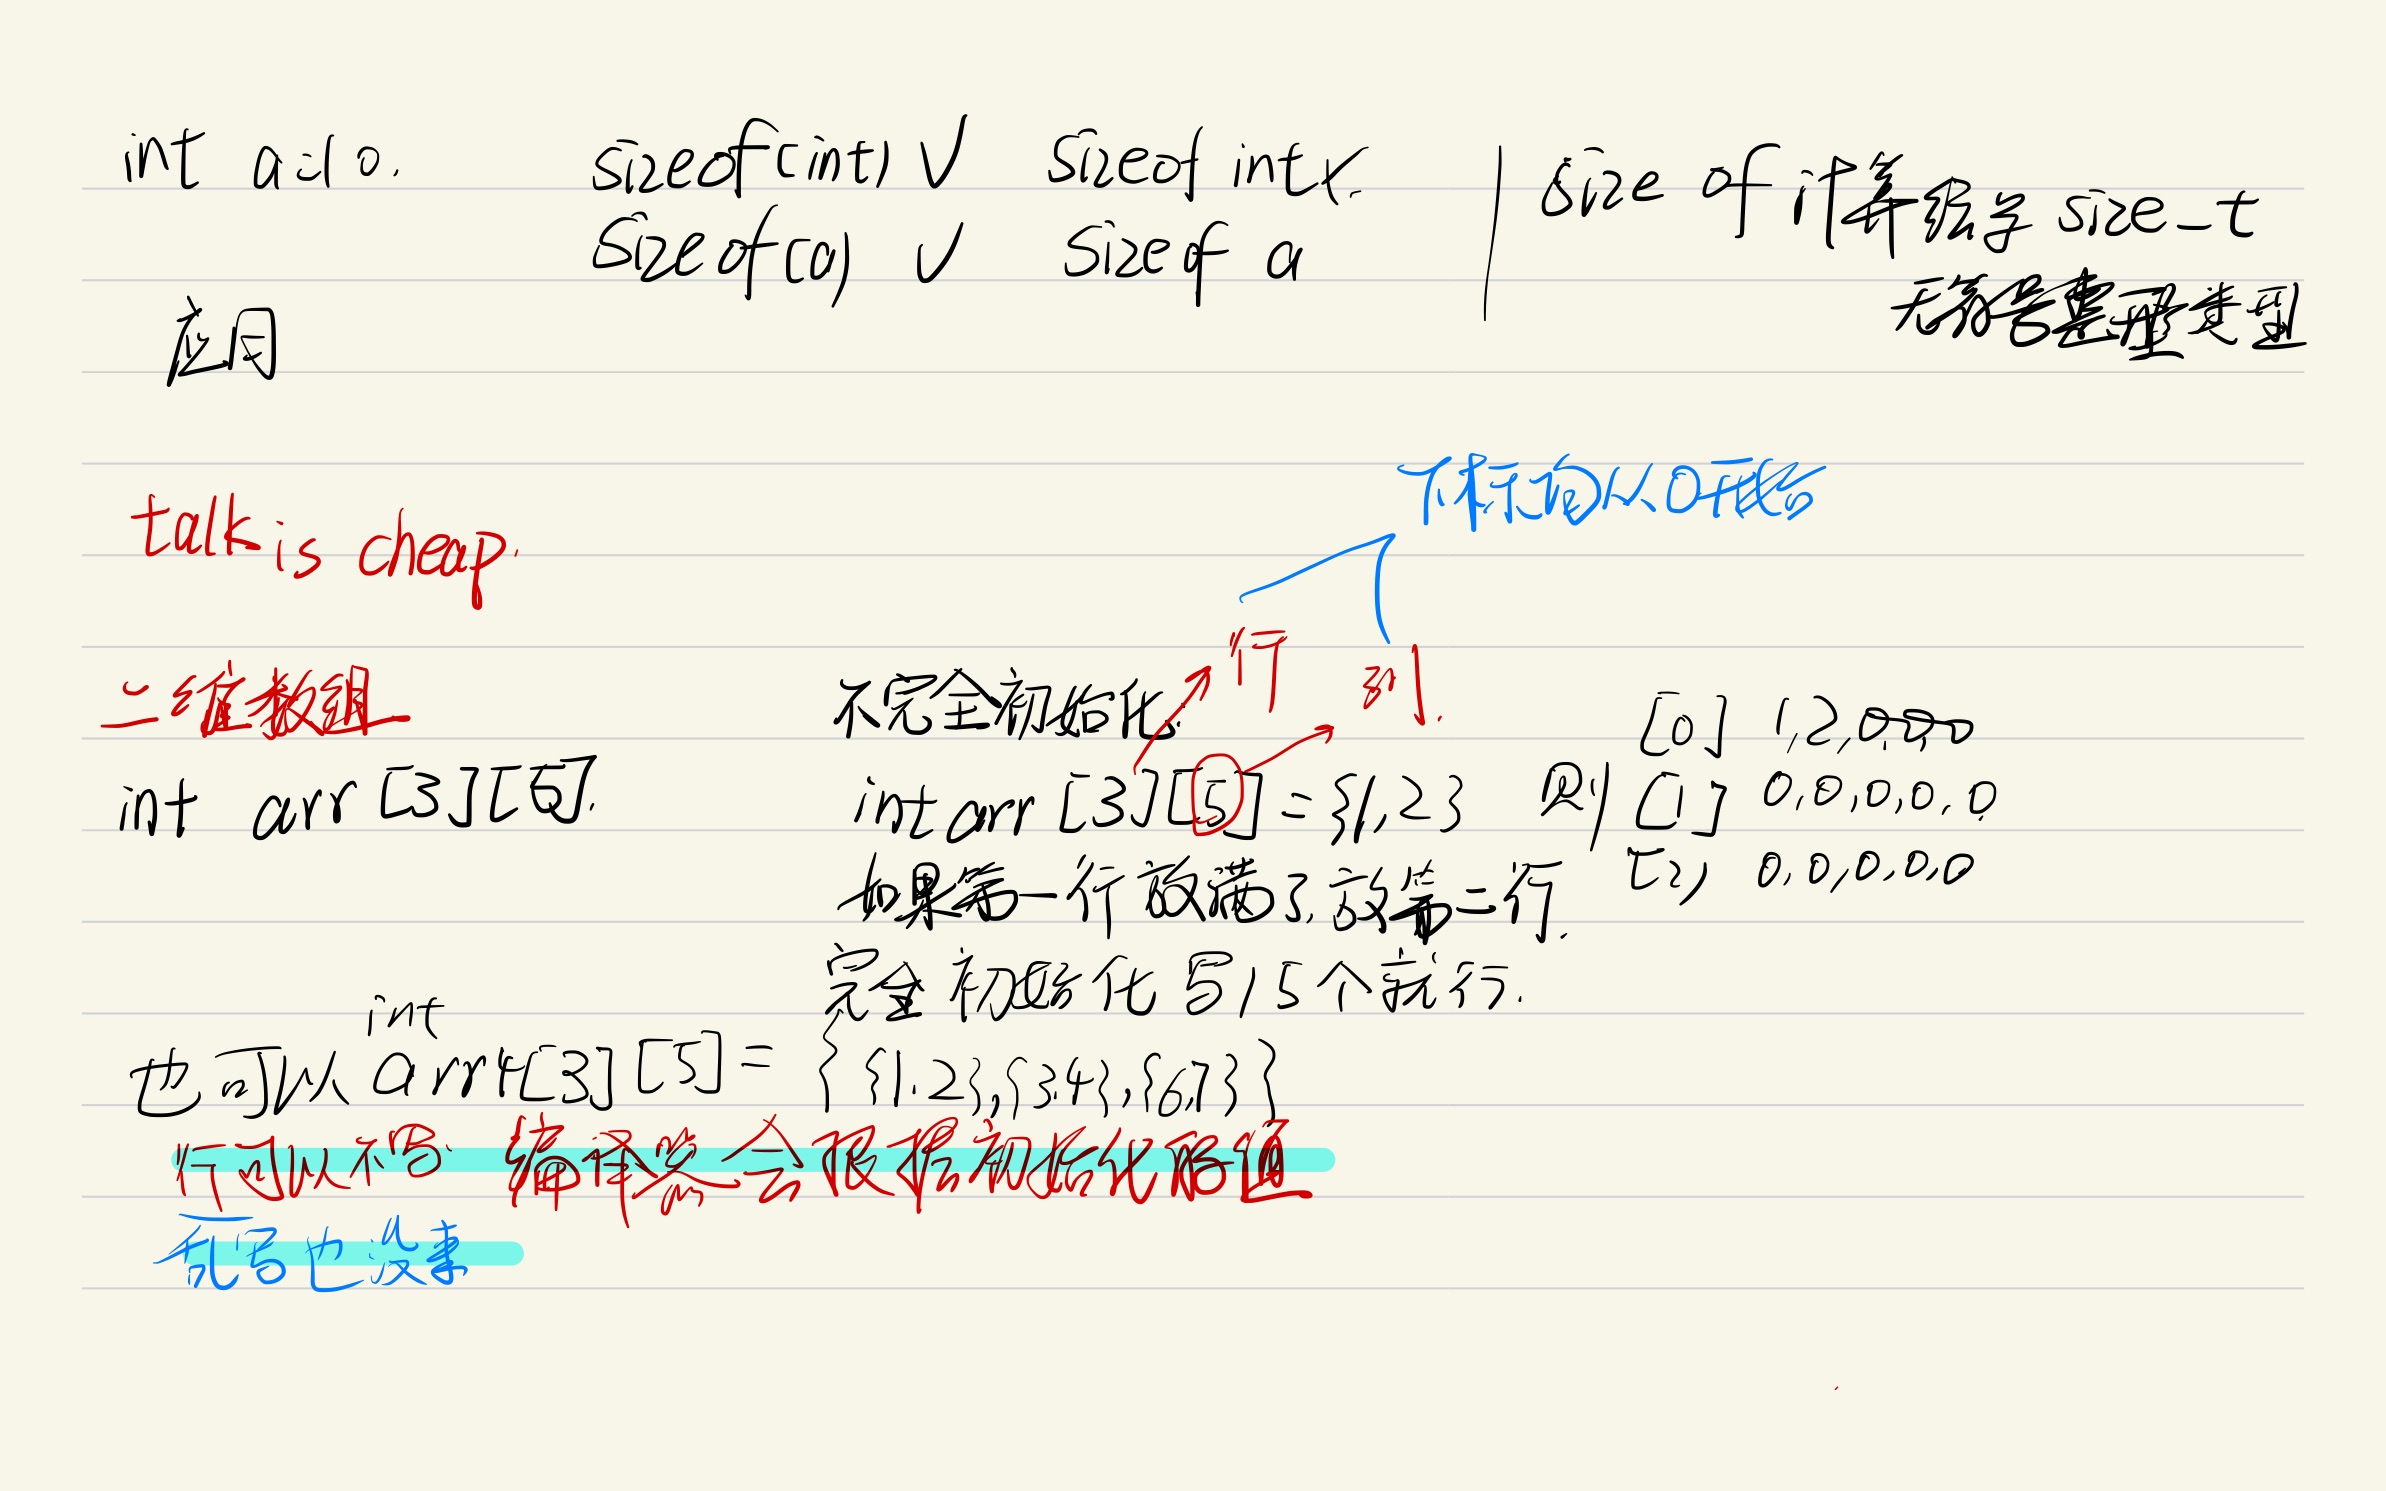 int a=10. sizeof(int) √ sizeof int ×. size of 计算结果 size_t
sizeof(a) √ sizeof a
无符号整型类型
应用
下标均从0开始
talk is cheap.
行 列.
二维数组 不完全初始化.
[0] 1,2,0,0,0
int arr [3][5]. int arr [3][5] = {1,2} 则 [1] 0,0,0,0,0
[2] 0,0,0,0,0
如果第一行放满了,放第二行.
完全初始化写15个就行.
int
也可以 arr4[3][5] = { {1.2},{3.4},{6,7} }
行可以不写. 编译器会根据初始化
乱写也没事